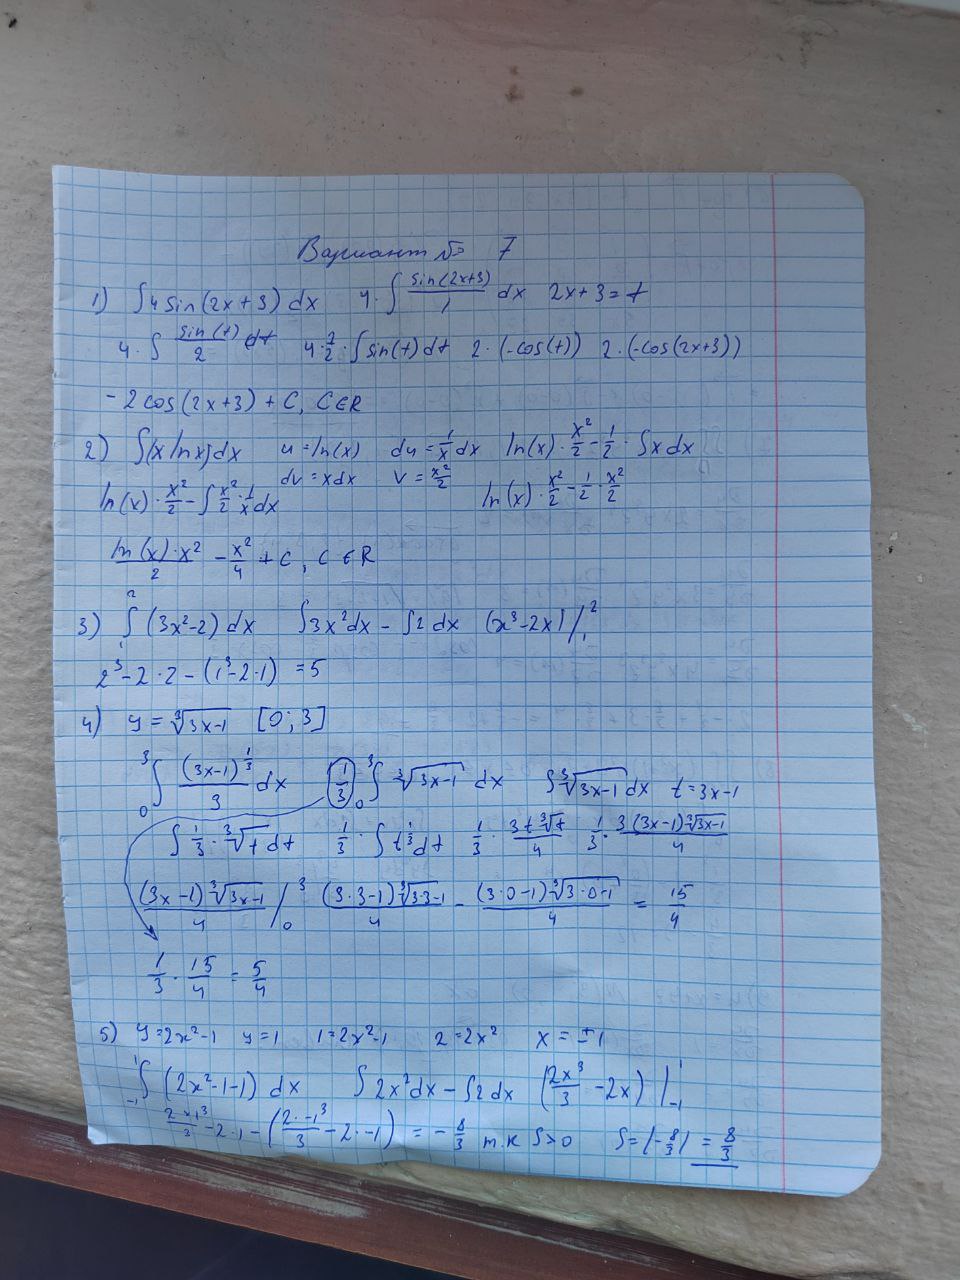 Вариант № 7
1) ∫4 sin(2x+3) dx   4·∫ sin(2x+3)/1 dx   2x+3=t
4·∫ sin(t)/2 dt   4·1/2·∫sin(t) dt   2·(-cos(t))   2·(-cos(2x+3))
-2cos(2x+3)+C, C∈R
2) ∫(x lnx)dx   u=ln(x)   du=1/x dx   ln(x)·x²/2-1/2·∫x dx
dv=xdx   v=x²/2
ln(x)·x²/2-∫x²/2·1/x dx   ln(x)·x²/2-1/2·x²/2
ln(x)·x²/2 - x²/4 + C, C∈R
3) ∫₁² (3x²-2) dx   ∫3x²dx - ∫2 dx   (x³-2x)/₁²
2³-2·2-(1³-2·1) = 5
4) y=∛(3x-1)   [0;3]
₀³∫ (3x-1)^(1/3)/3 dx   1/3 ₀³∫ ∛(3x-1) dx   ∫∛(3x-1) dx   t=3x-1
∫ 1/3·∛t dt   1/3·∫t^(1/3) dt   1/3·3t∛t/4   1/3·3(3x-1)∛(3x-1)/4
(3x-1)∛(3x-1)/4 /₀³   (3·3-1)∛(3·3-1)/4 - (3·0-1)∛(3·0-1)/4 = 15/4
1/3·15/4 = 5/4
5) y=2x²-1   y=1   1=2x²-1   2=2x²   x=±1
₋₁¹∫ (2x²-1-1) dx   ∫2x²dx-∫2 dx   (2x³/3-2x)|₋₁¹
2·1³/3-2·1-(2·-1³/3-2·-1) = -8/3   т.к S>0   S=|-8/3| = 8/3